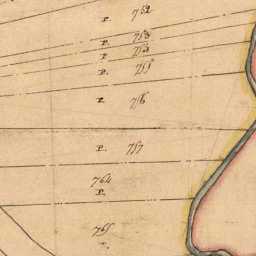 P. 752
P. 753
P. 754
P. 755
P. 756
P. 757
764
P.
765